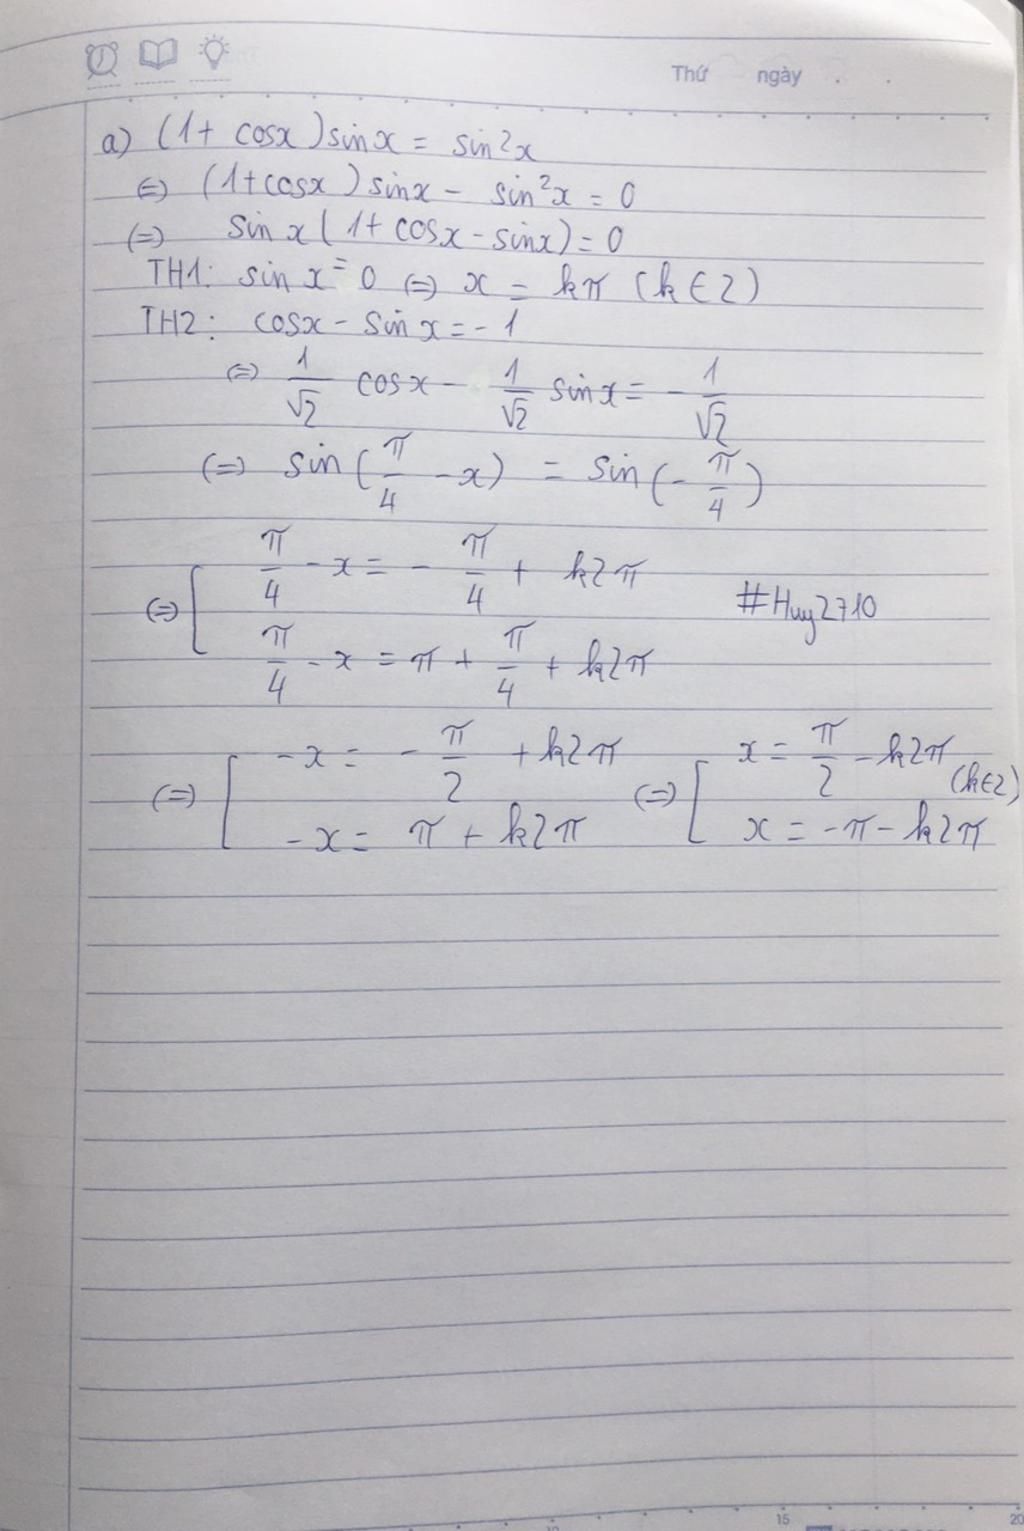 Thứ ngày
a) (1+ cosx)sinx = sin²x
(=) (1+cosx) sinx - sin²x = 0
(=) sin x (1+ cosx - sinx) = 0
TH1: sin x = 0 (=) x = kπ (k∈Z)
TH2: cosx - sin x = - 1
(=) 1/√2 cosx - 1/√2 sinx = - 1/√2
(=) sin(π/4 - x) = sin(-π/4)
(=) [ π/4 - x = - π/4 + k2π
π/4 - x = π + π/4 + k2π
#Huy2710
(=) [ -x = - π/2 + k2π (=) [ x = π/2 - k2π (k∈Z)
-x = π + k2π x = -π - k2π
10 15 20